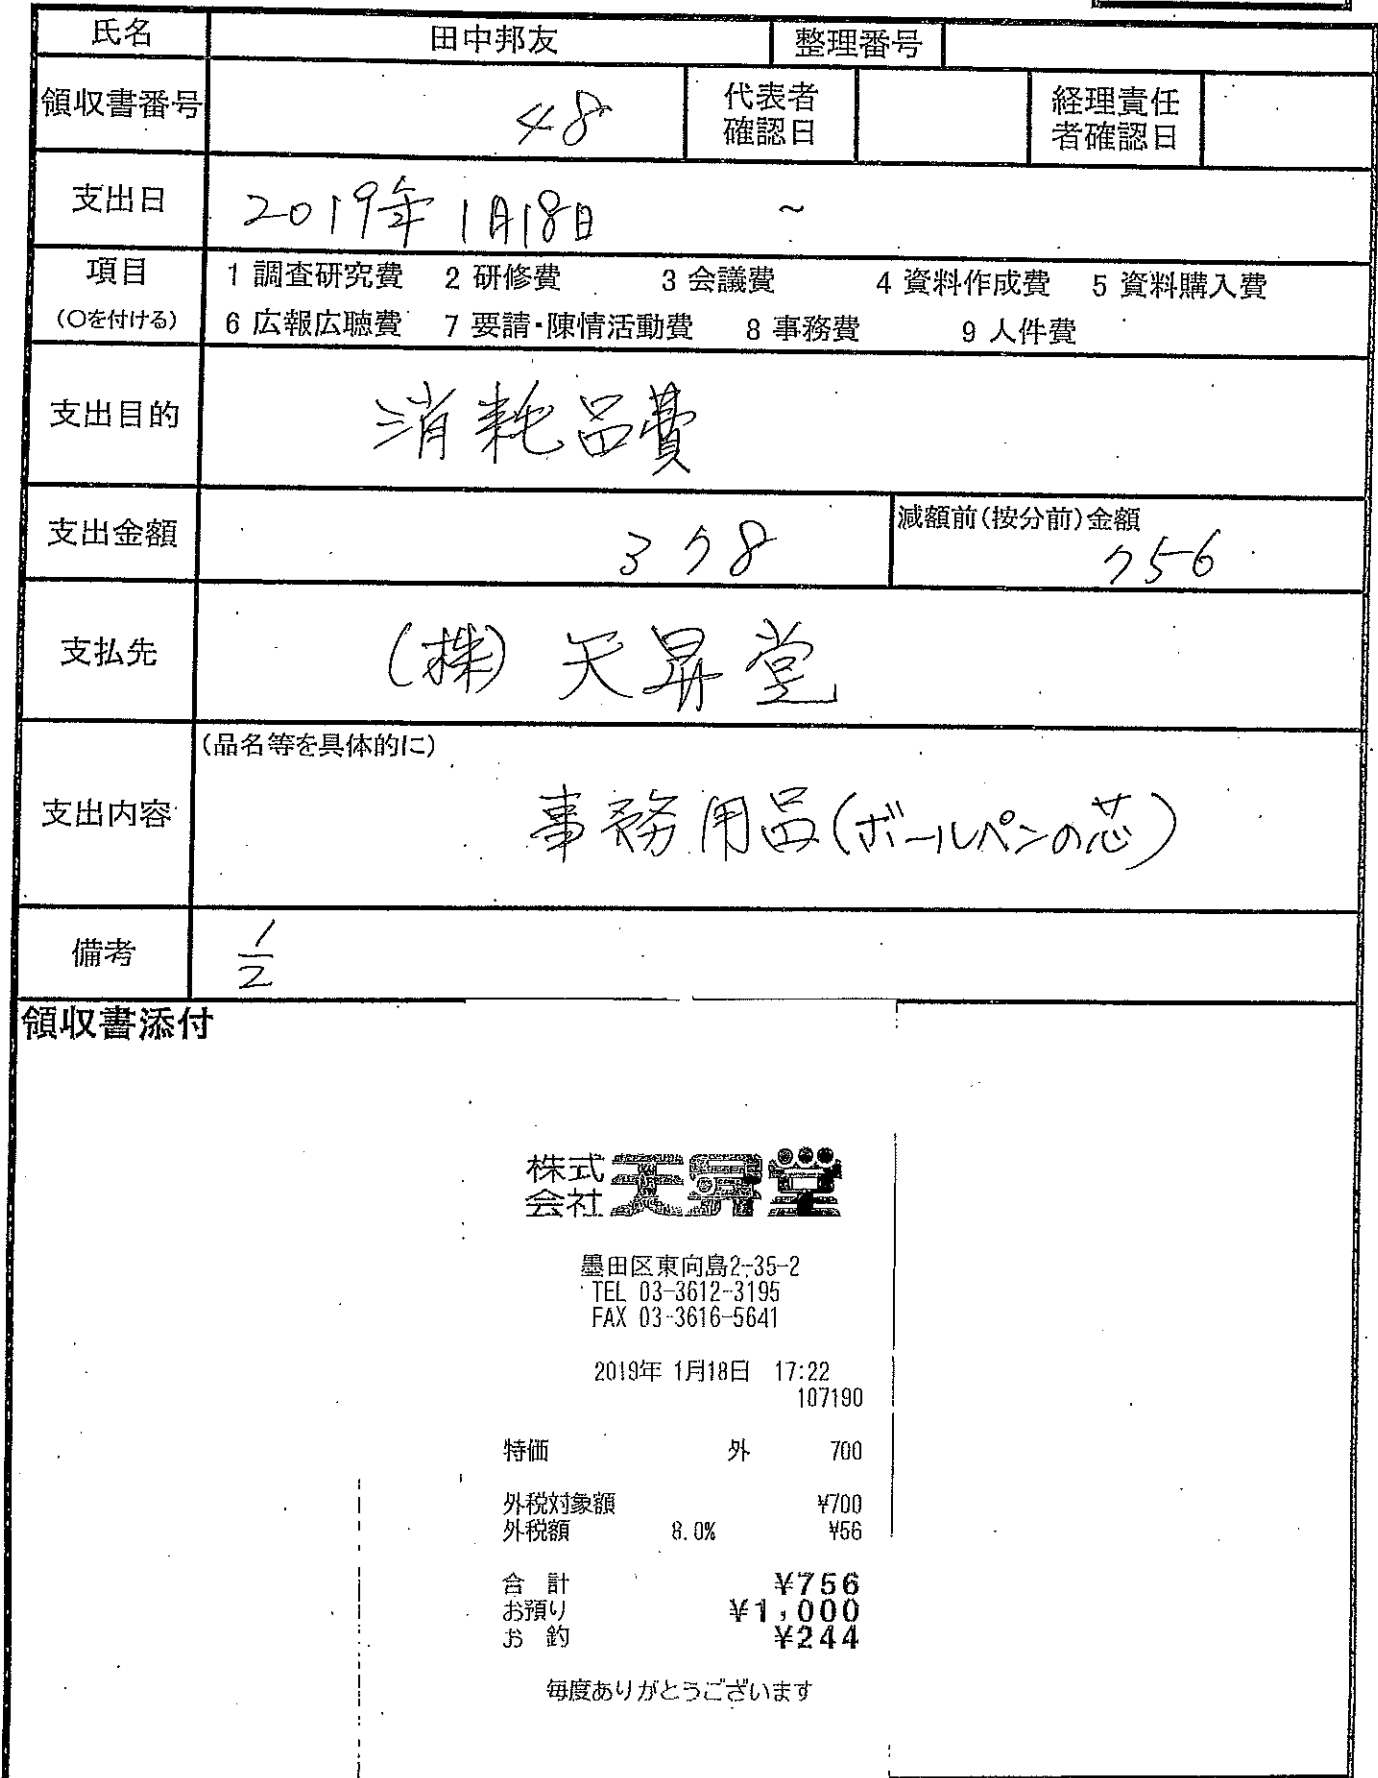 氏名 田中邦友 整理番号
領収書番号 48 代表者確認日 経理責任者確認日
支出日 2019年 1月18日 ~
項目 1 調査研究費 2 研修費 3 会議費 4 資料作成費 5 資料購入費
(○を付ける) 6 広報広聴費 7 要請・陳情活動費 8 事務費 9 人件費
支出目的 消耗品費
支出金額 378 減額前(按分前)金額 756
支払先 (株) 天昇堂
支出内容 (品名等を具体的に)
事務用品(ボールペンの芯)
備考 1/2
領収書添付
株式会社 天昇堂
墨田区東向島2-35-2
TEL 03-3612-3195
FAX 03-3616-5641
2019年 1月18日 17:22
107190
特価 外 700
外税対象額 ¥700
外税額 8.0% ¥56
合 計 ¥756
お預り ¥1,000
お 釣 ¥244
毎度ありがとうございます